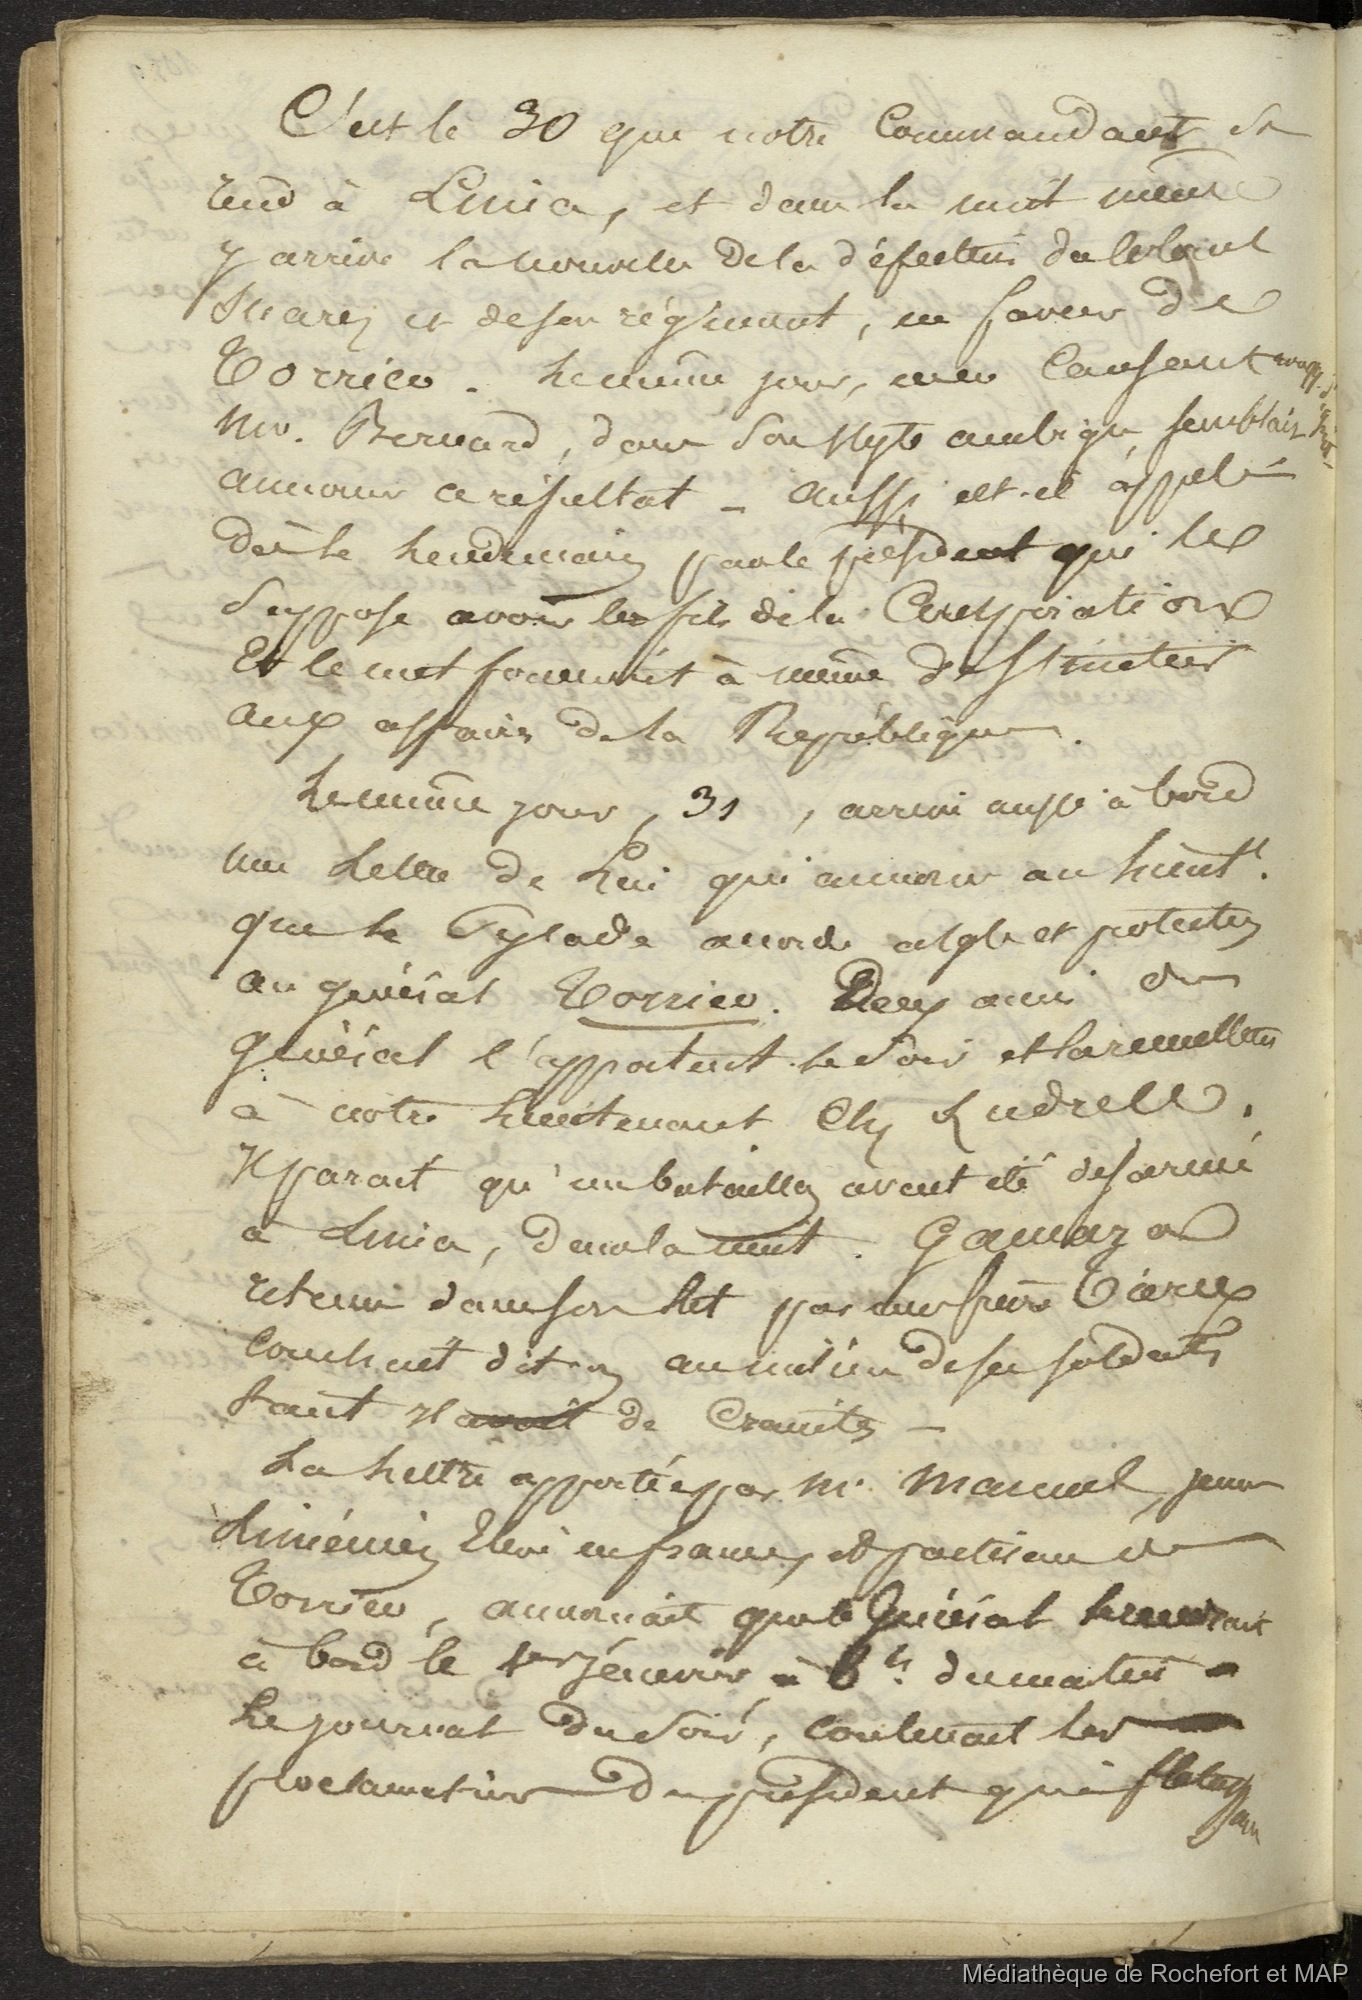 C'est le 30 que notre Commandant se
rend à Lima, et dans la nuit même
y arrive la nouvelle de la défection du Colonel
Suarez et de son régiment, en faveur de
Torrico. Le même jour, en causant
Mr. Bernard, dans son style ambigu, semblait
annoncer ce résultat _ aussi est-il appelé
dès le lendemain par le président qui le
suppose avoir les fils de la Conspiration
Et le met à même
aux affaires de la République.
Le même jour, 31, arrive aussi à bord
une Lettre de Lui qui annonce au Lieut.t
que le Pylade accorde asyle et protection
au général Torrico. Deux amis du
général l'apportent le soir et la remettent
à notre Lieutenant Chs Ludrell.
Il parait qu'un bataillon avait été desarmé
à Lima, dans la nuit. Gamarra
retenu dans son lit par une fièvre Tierce
Couchait dit-on au milieu de ses soldats
tant il avait de Craintes _
La lettre apportée par Mr. Manuel, jeune
Liménien Elevé en france, et partisan de
Torrico, annonçait que le Général
à bord le 1er Janvier à 6 h. du matin
Le journal du soir, contenait les
proclamations du président qui